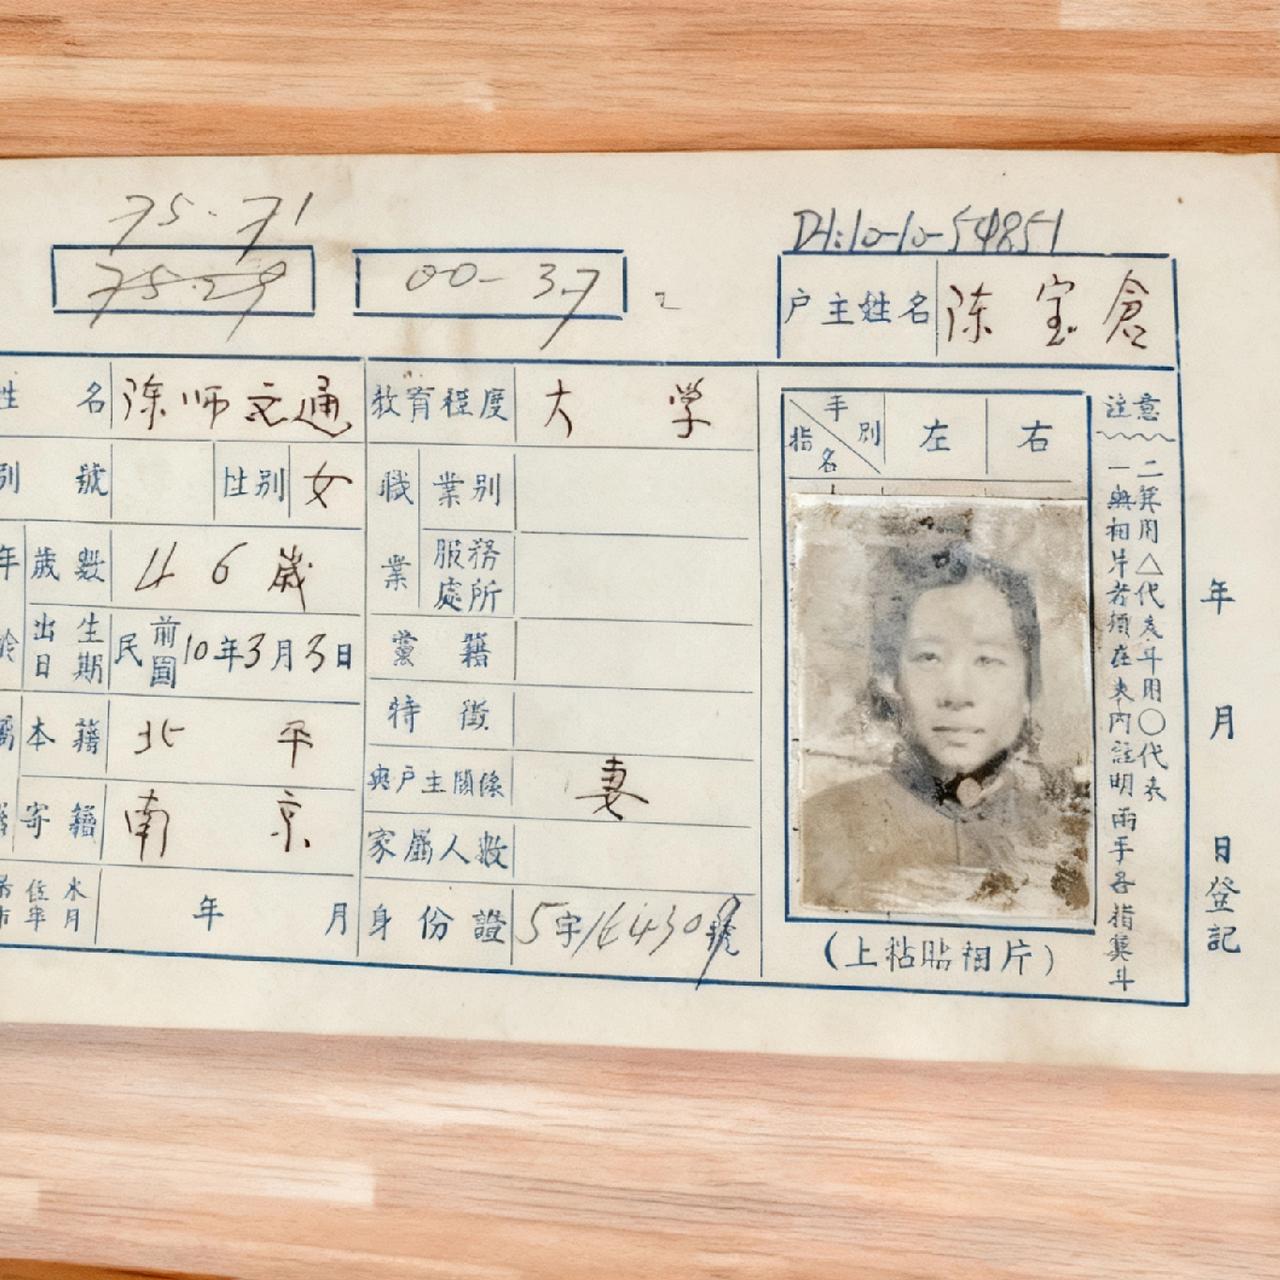 75-71
75-29
00-37
D1:10-10-54851
户主姓名 陈宝倉
姓名 陈师文通
教育程度 大学
别號 性别 女
職業 業别
年龄 歲數 46歲
服務處所
出生日期 民國前10年3月3日
黨籍
本籍 北平
特徵
與户主關係 妻
寄籍 南京
家屬人數
年 月
身份證 5字164309號
手别 指名 左 右
(上粘貼相片)
注意
一 無相片者須在表内註明兩手各指箕斗
二 箕用△代表斗用○代表
年 月 日登記